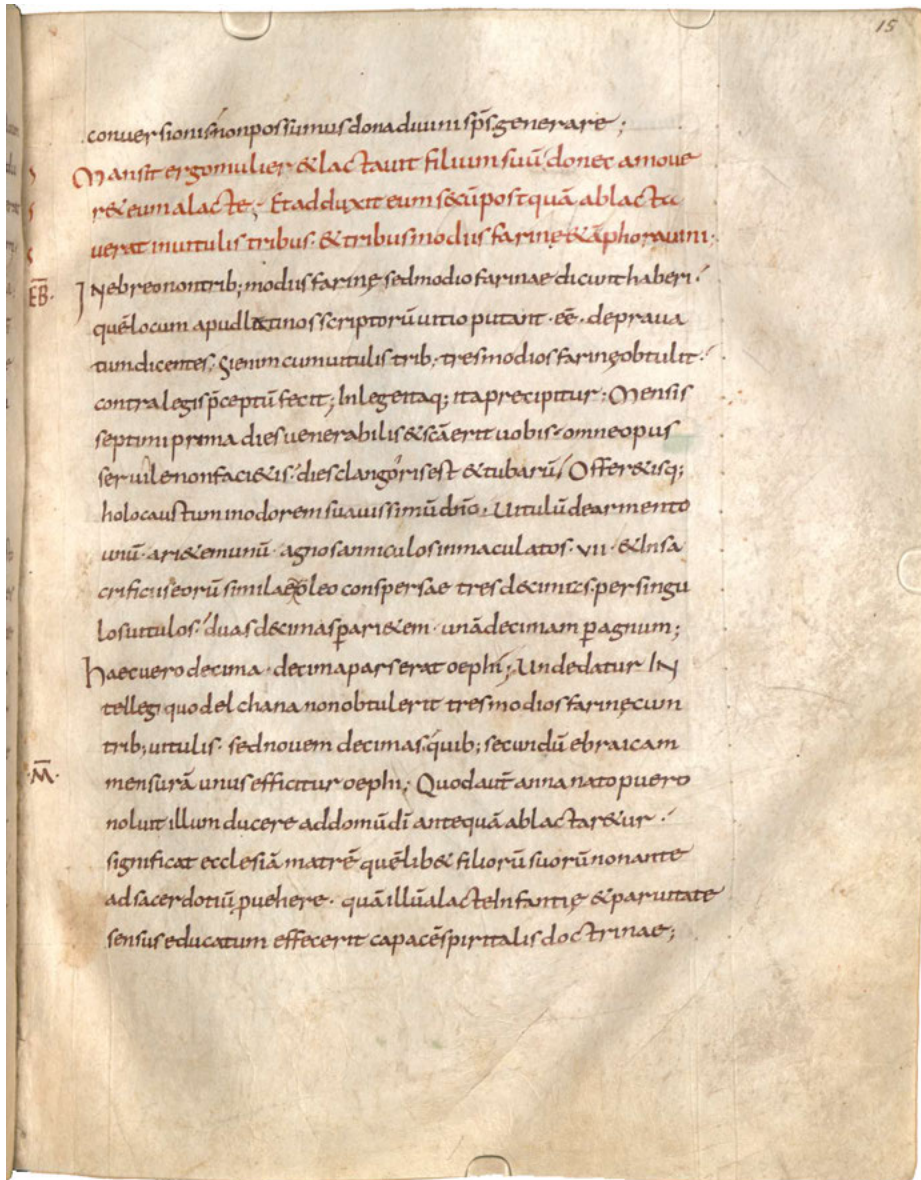 15
conuersionis non possumus dona diuini sp̄s generare;
Mansit ergo mulier & lactauit filium suū donec amoue
r& eum a lacte; Et adduxit eum secū postquā ablacta
uerat in uitulis tribus · & tribus modiis farinę & āphora uini;
EB̄· IN ebreo non trib; modiis farinę sed modio farinae dicunt haberi ·
quē locum apud latinos scriptorū uitio putant · eē · depraua
tum dicentes; Si enim cum uitulis trib; tres modios farinę obtulit ·
contra legis p̄ceptū fecit; In lege itaq; ita precipitur; Mensis
septimi prima dies uenerabilis & sc̄a erit uobis · omne opus
seruile non faci&is · dies clangoris est & tubarū / Offer&isq;
holocaustum in odorem suauissimū dn̄o · Uitulū de armento
unū · ari&em unū · agnos anniculos inmaculatos · VII · & In sa
crificiis eorū similae oleo conspersae tres decimas · per singu
los uitulos · duas decimas p̄ ari&em · unā decimam p̄ agnum;
haec uero decima · decima pars erat oephi; Unde datur IN
tellegi quod elchana non obtulerit tres modios farinę cum
trib; uitulis · sed nouem decimas · quib; secundū ebraicam
·M̄· mensurā unus efficitur oephi; Quod aut̄ anna nato puero
noluit illum ducere ad domū dī antequā ablactar&ur ·
significat ecclesiā matrē quēlib& filiorū suorū non ante
ad sacerdotiū p̄uehere · quā illū a lacte Infantię & paruitate
sensus educatum effecerit capacē spiritalis doctrinae;